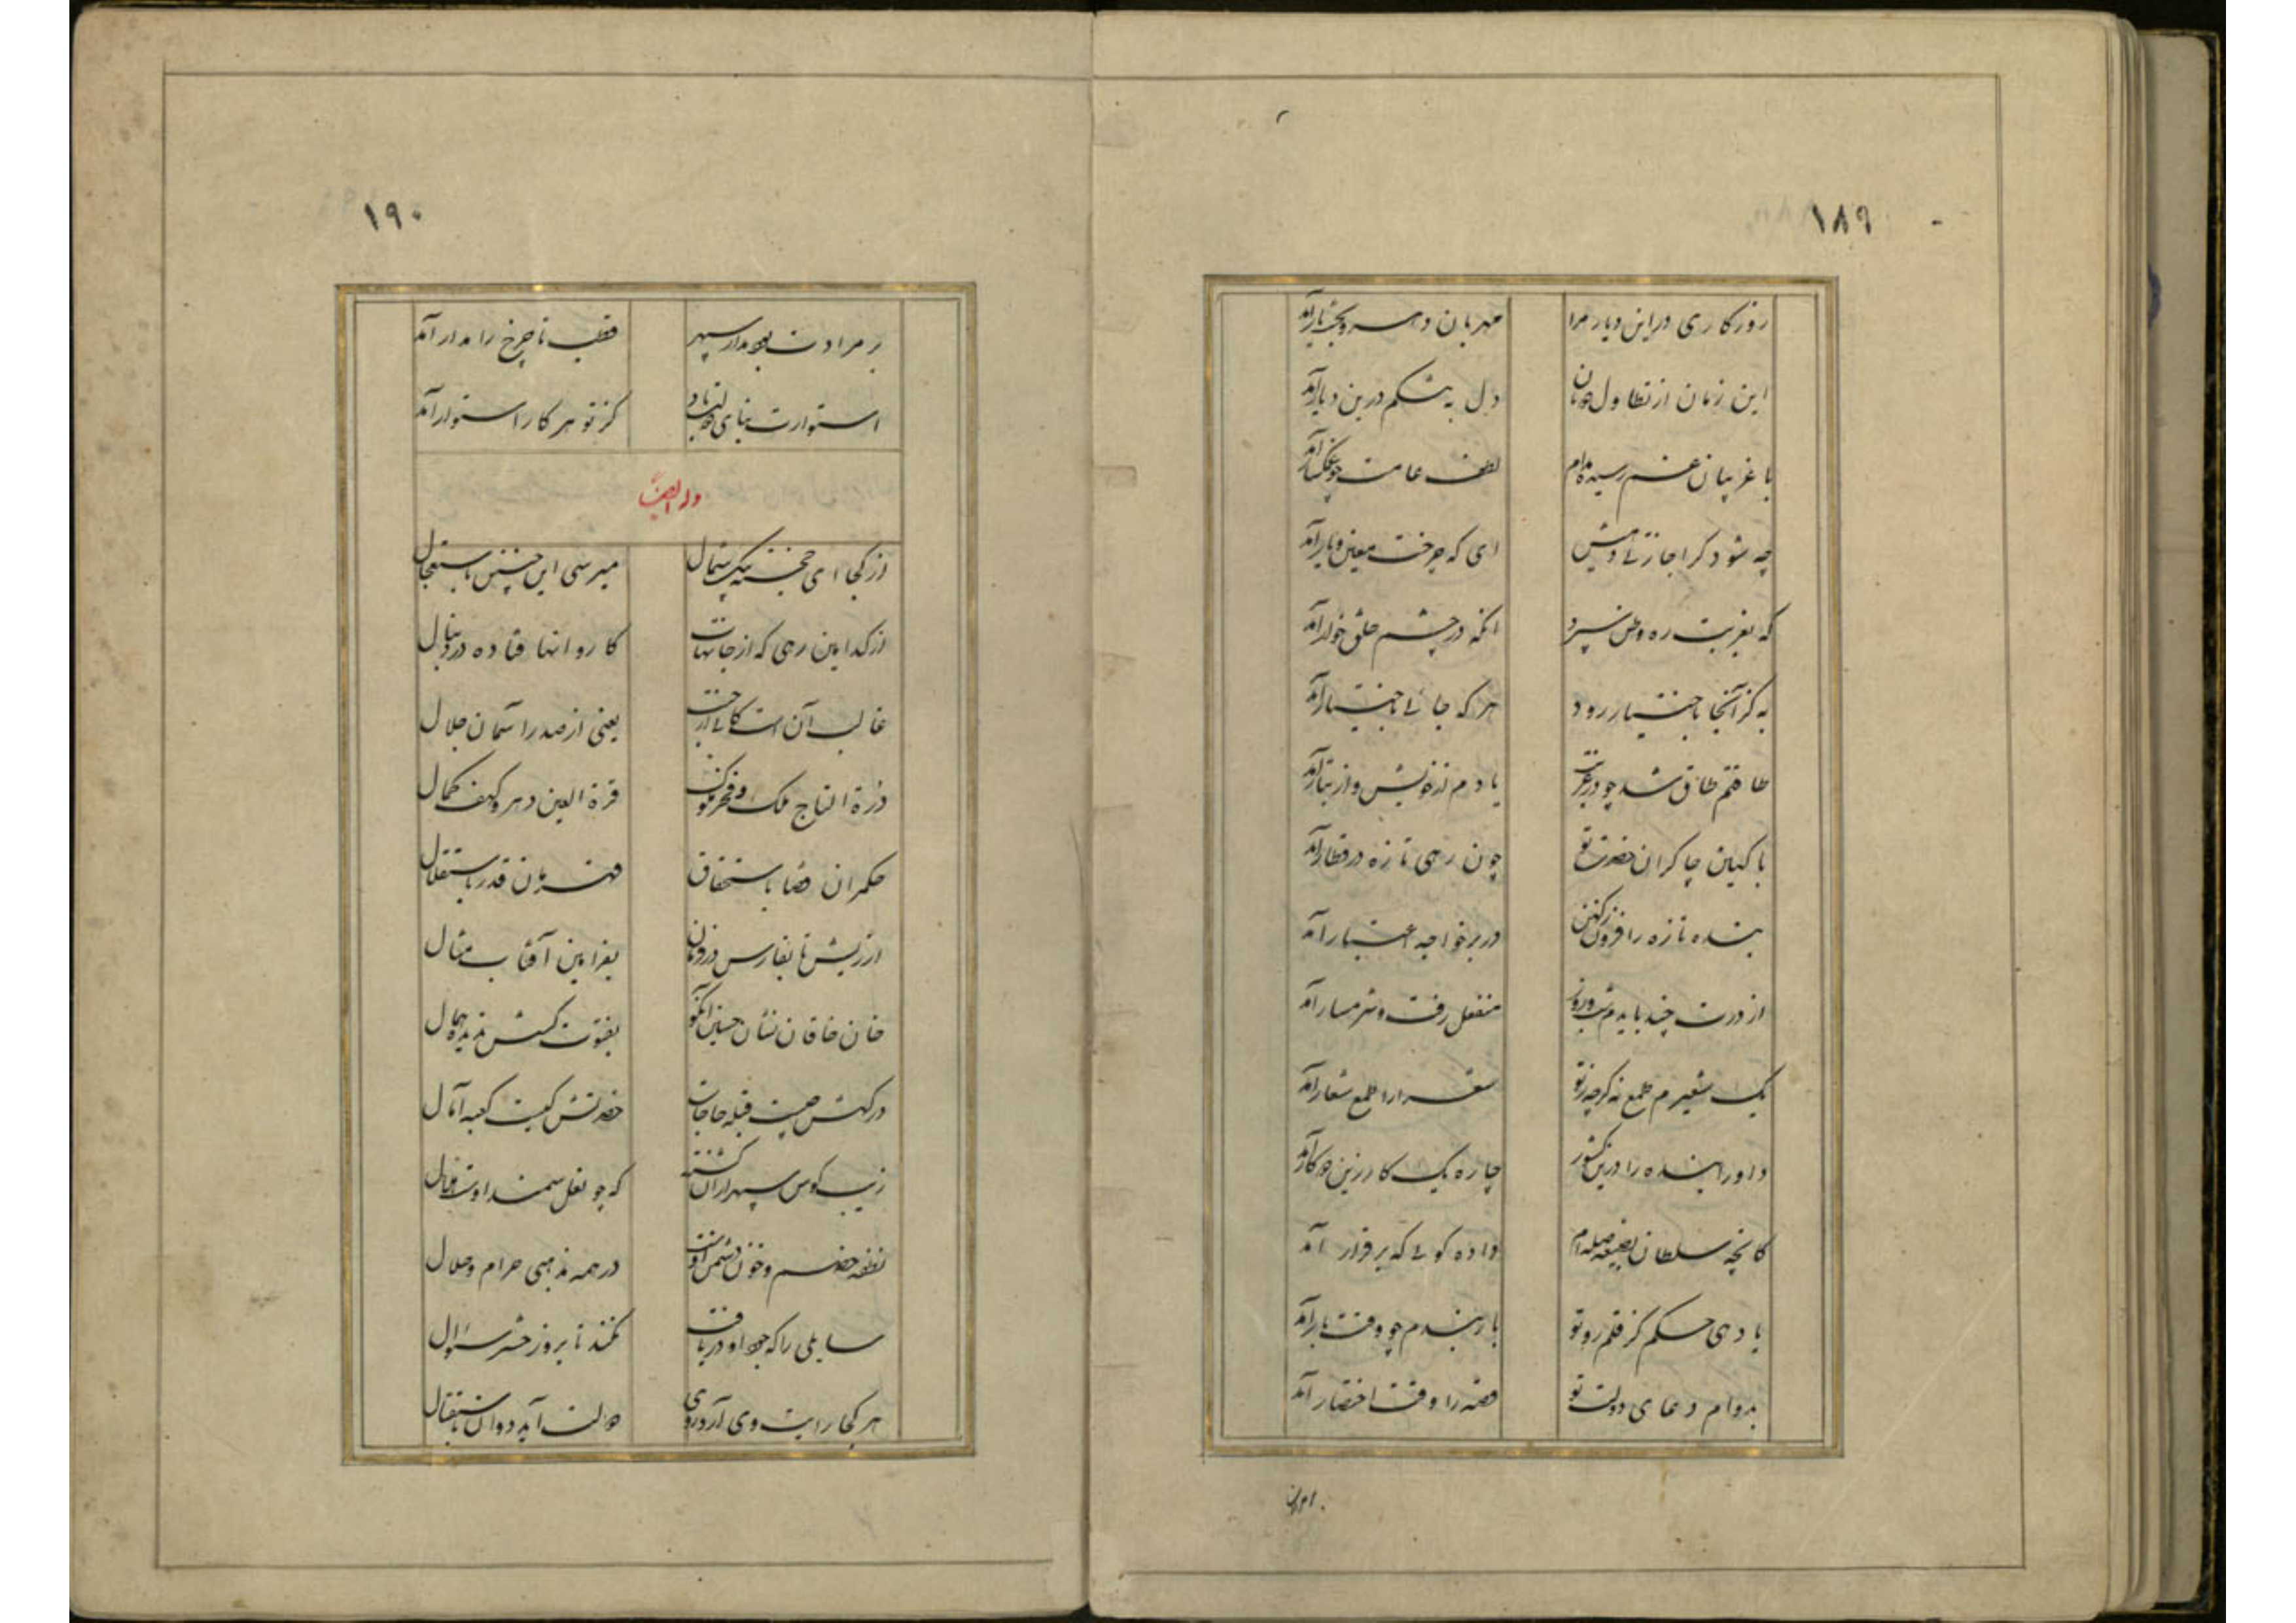 ۱۸۹
روزکاری دراین دیار مرا
مهربان دهر وبخت یار آمد
این زمان از تطاول
دل به تنکم درین دیار آمد
با غریبان غم رسیده مدام
لطف عامت چو غمکسار آمد
چه شود کر اجازتی دهیش
ای که چرخت معین و یار آمد
که بغربت ره وطن سپرد
انکه در چشم خلق خوار آمد
به کز آنجا باختیار رود
هر که جائی باختیار آمد
طاقتم طاق شد چو در غربت
یادم از خویش و از تبار آمد
با کهین چاکران حضرت تو
چون رهی تازه در قطار آمد
بنده تازه را فزون ز کهن
در بر خواجه اعتبار آمد
از درت چند بایدم شب و روز
منفعل رفت و شرمسار آمد
یک شعیرم طمع نه کرچه ز تو
شعرا را طمع شعار آمد
داورا بنده را درین کشور
چاره یک کار زین دو کار آمد
کانچه سلطان بصیغه صله ام
داده کوئی که برقرار آمد
یا دهی حکم کز قلمرو تو
بار بندم چو وقت بار آمد
بدوام دعای دولت تو
قصه را وقت اختصار آمد
۱۹۰
بر مرادت بود مدار سپهر
قطب تا چرخ را مدار آمد
استوارت بنای دولت باد
کز تو هر کار استوار آمد
وله ایضاً
از کجا ای خجسته پیک شمال
میرسی این چنین باستعجال
از کدامین رهی که از جانهات
کاروانها فتاده در دنبال
غالب آن است کائی از
یعنی از صدر آسمان جلال
درة التاج ملک و فخر ملوک
قرة العین دهر و کهف کمال
حکمران قضا باستحقاق
قهرمان قدر باستقلال
ارزش تا بفارس در فرمان
بفرامین آفتاب مثال
خان خاقان نشان حسین آنکو
بفتوت کسش ندیده همال
درکهش چیست قبله حاجات
حضرتش کیست کعبه آمال
زیب کوش سپهر ازان کشته
که چو نعل سمند اوست هلال
نطفه خصم و خون دشمن اوست
در همه مذهبی حرام و حلال
سایلی را که جود او دریافت
نکند تا بروز حشر سئوال
هر کجا رایت وی آرد روی
دولت آید دوان باستقبال